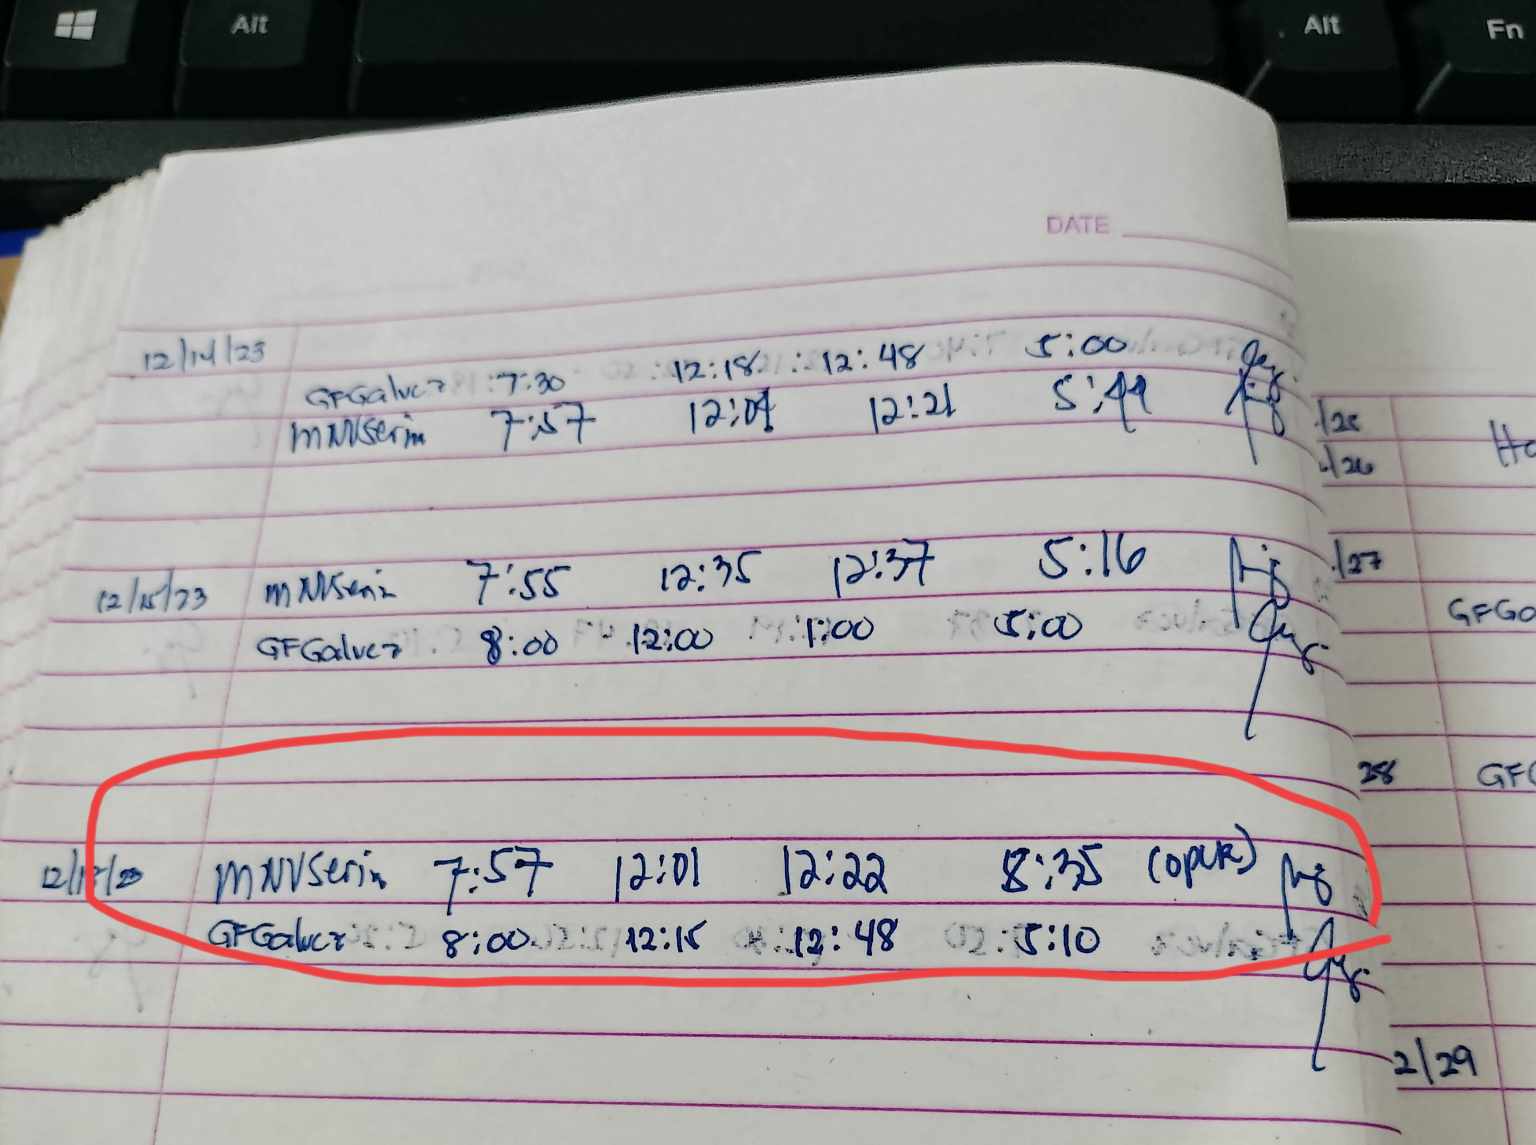 Alt
Alt Fn
DATE
12/14/23
GFGalvez 7:30 12:18 12:48 5:00
MNVSerin 7:57 12:01 12:21 5:44
12/15/23 MNVSerin 7:55 12:35 12:37 5:16
GFGalvez 8:00 12:00 1:00 5:00
MNVSerin 7:57 12:01 12:22 8:35
GFGalvez 8:00 12:15 12:48 5:10
/25
/26
/27
GFGa
28 GFG
2/29